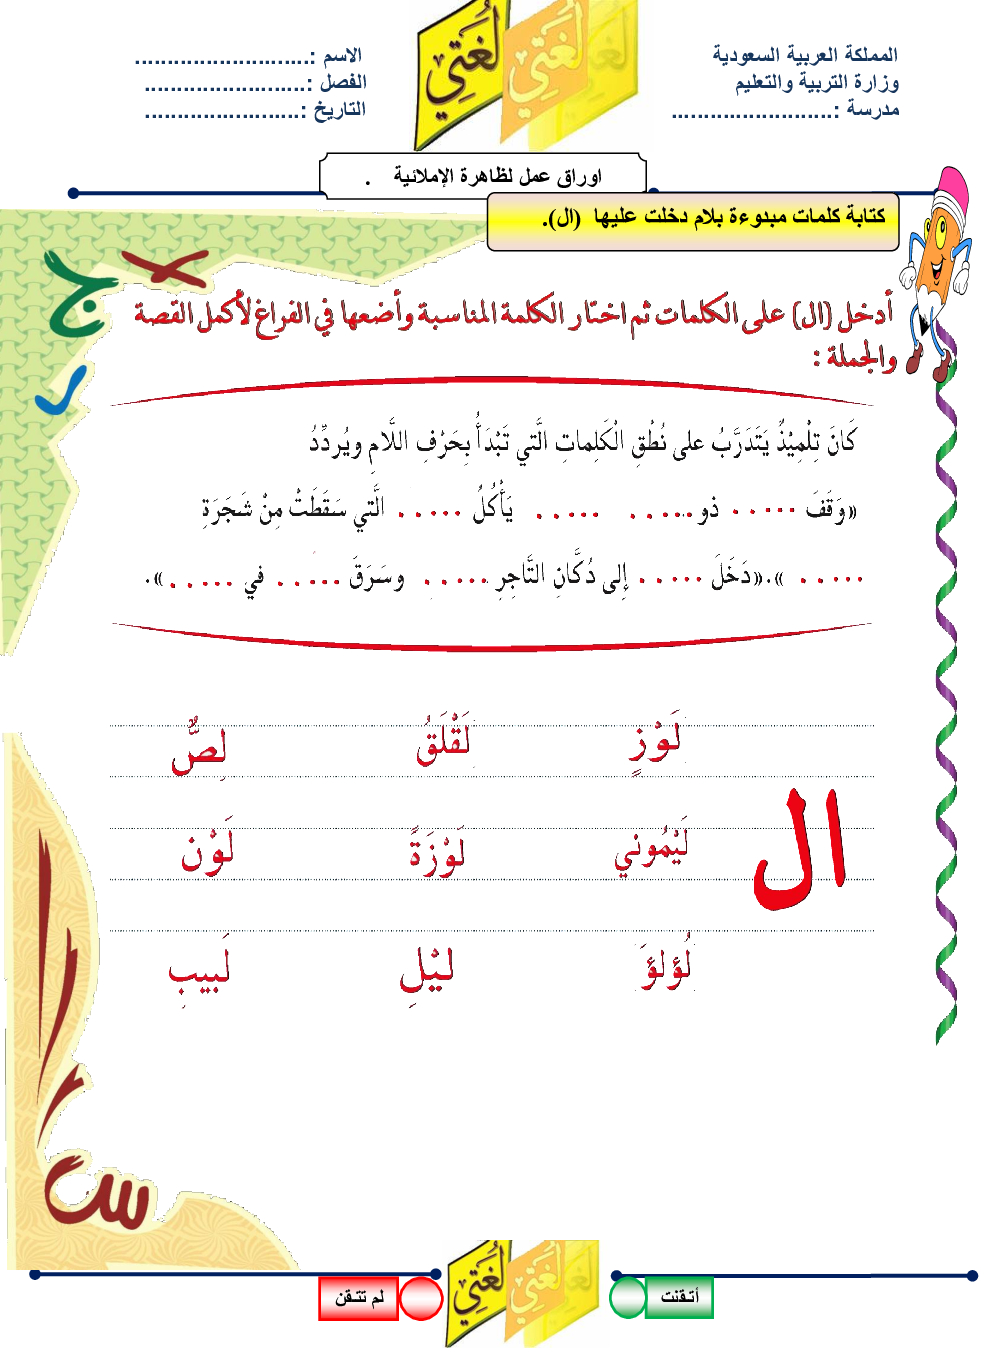 المملكة العربية السعودية
وزارة التربية والتعليم
مدرسة :.........................
الاسم :...........................
الفصل :.........................
التاريخ :........................
لُغَتِي لُغَتِي
اوراق عمل لظاهرة الإملائية .
كتابة كلمات مبدوءة بلام دخلت عليها (ال).
أدخل (ال) على الكلمات ثم اختار الكلمة المناسبة وأضعها في الفراغ لأكمل القصة
والجملة :
كَانَ تِلْمِيْذٌ يَتَدَرَّبُ على نُطْقِ الْكَلِماتِ الَّتي تَبْدَأُ بِحَرْفِ اللَّامِ ويُردِّدُ
«وَقَفَ ..... ذو ..... ..... يَأْكُلُ ..... الَّتي سَقَطَتْ مِنْ شَجَرَةِ
..... ».«دَخَلَ ..... إِلى دُكَّانِ التَّاجِرِ ..... وسَرَقَ ..... في .....».
لَوْزٍ لَقْلَقُ لِصٌّ
ال
لَيْمُوني لَوْزَةً لَوْن
لُؤلؤَ ليْلِ لَبيبِ
أتـقنت
لُغَتِي لُغَتِي
لم تتـقن